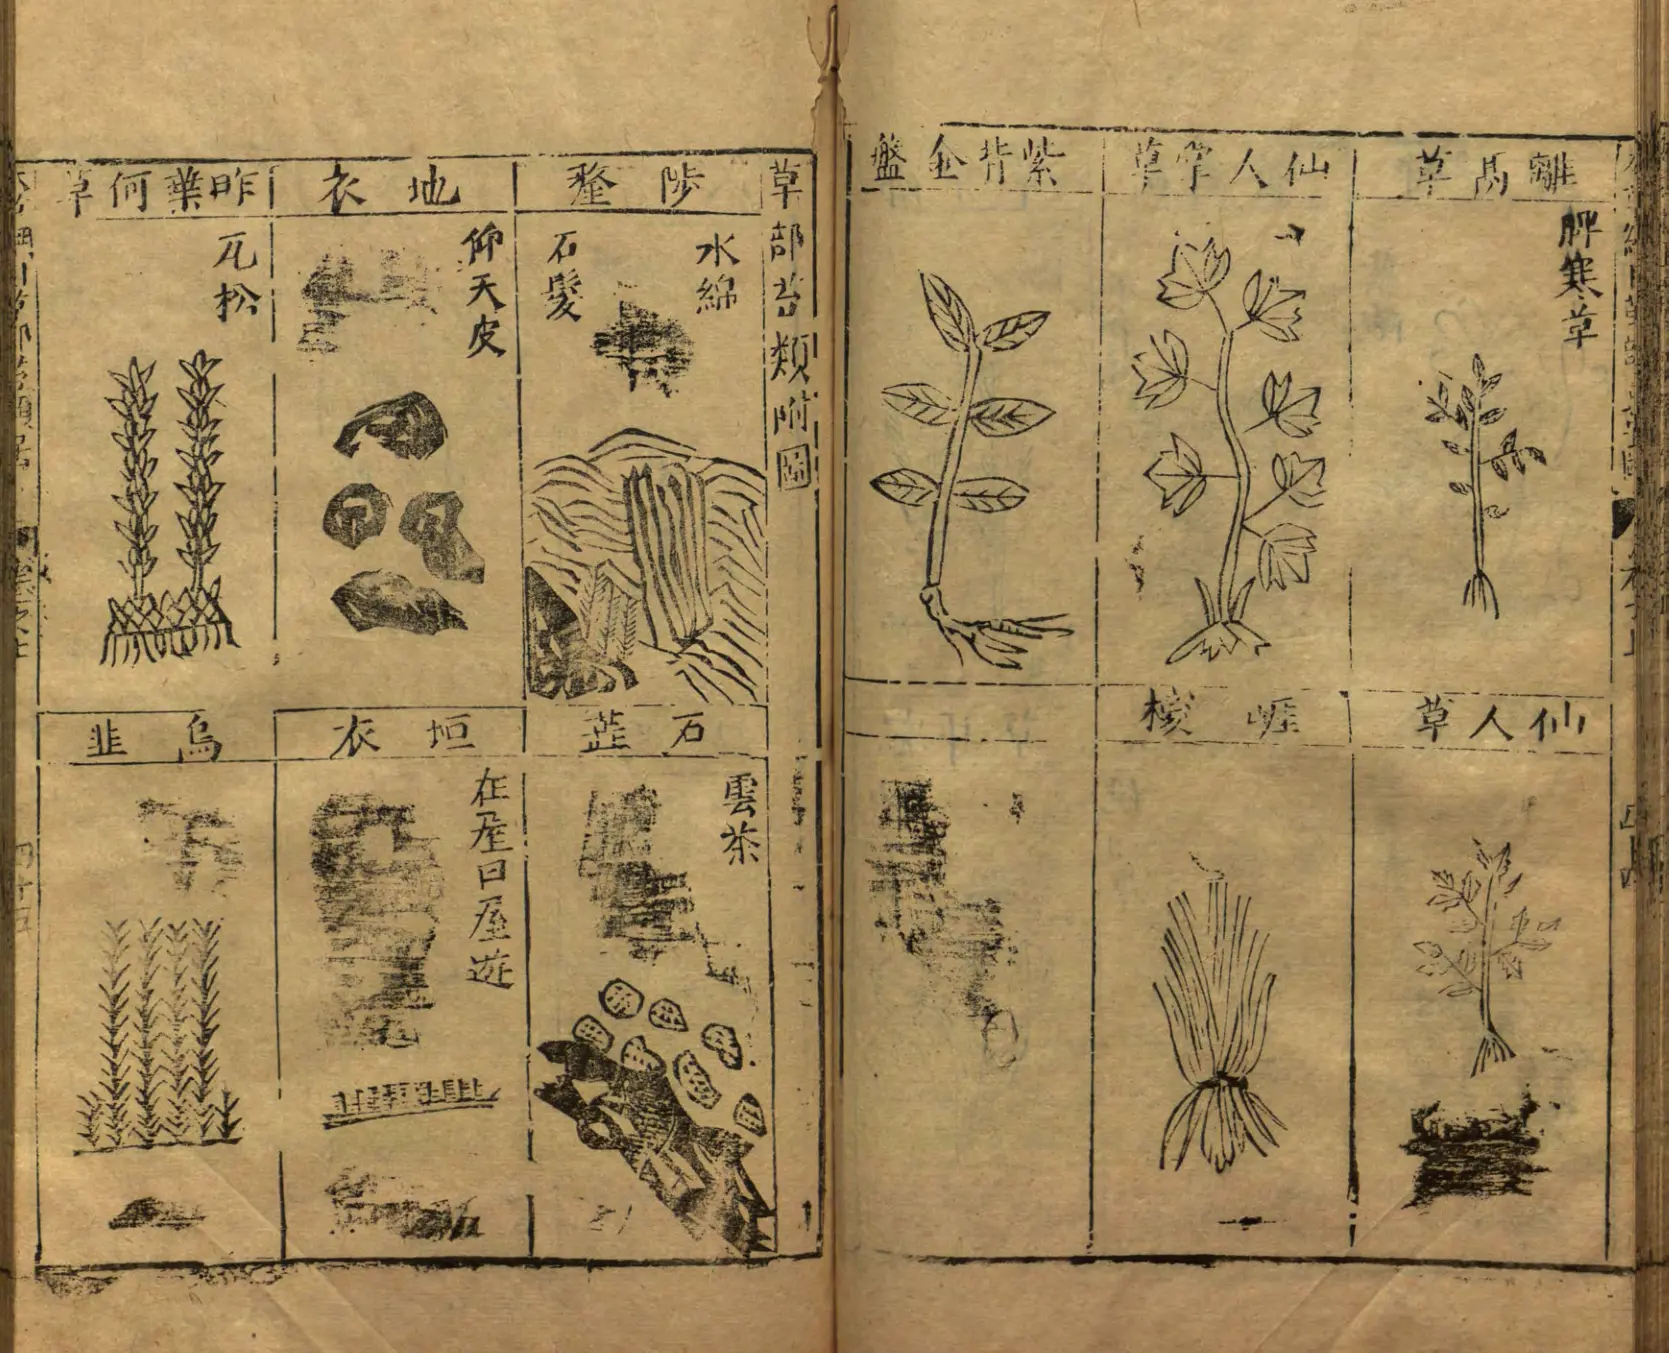 離鬲草
脾寒草
仙人掌草
紫背金盤
仙人草
崕椶
草部苔類附圖
陟釐
水綿
石髮
地衣
仰天皮
昨葉何草
瓦松
石蕋
雲茶
垣衣
在屋曰屋遊
烏韭